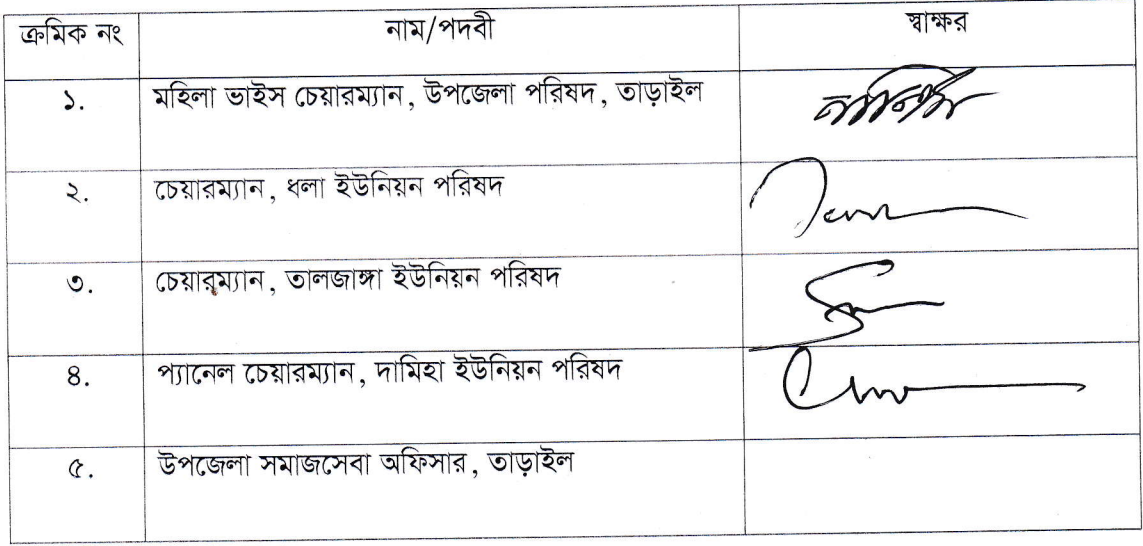 ক্রমিক নং নাম/পদবী স্বাক্ষর
১. মহিলা ভাইস চেয়ারম্যান, উপজেলা পরিষদ, তাড়াইল
২. চেয়ারম্যান, ধলা ইউনিয়ন পরিষদ
৩. চেয়ারম্যান, তালজাঙ্গা ইউনিয়ন পরিষদ
৪. প্যানেল চেয়ারম্যান, দামিহা ইউনিয়ন পরিষদ
৫. উপজেলা সমাজসেবা অফিসার, তাড়াইল